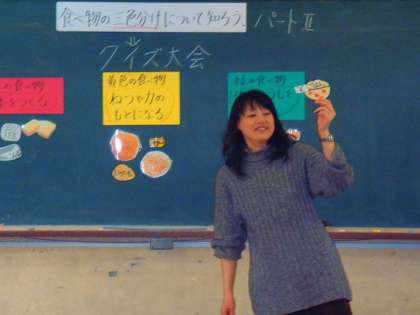 食べ物の三色分けについて知ろう。パートⅡ
クイズ大会
の食べ物
をつくる
黄色の食べ物
ねつや力の
もとになる
緑の食べ物